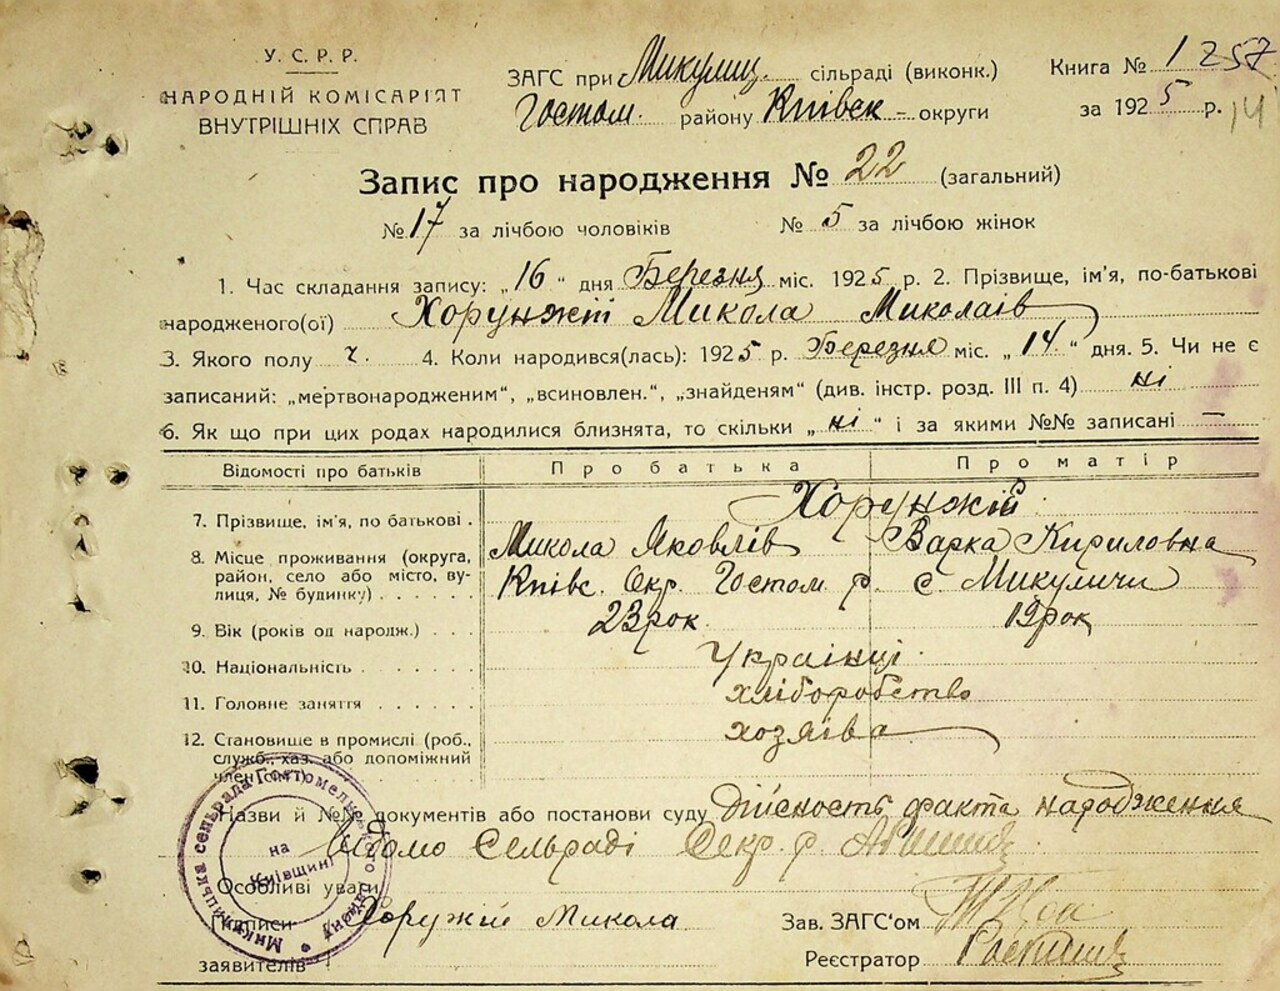 У. С. Р. Р.
НАРОДНІЙ КОМІСАРІЯТ
ВНУТРІШНІХ СПРАВ
ЗАГС при Микулиц. сільраді (виконк.)
Гостом. району Київск - округи
Книга № 1 257
за 1925 р. 14
Запис про народження № 22 (загальний)
№ 17 за лічбою чоловіків № 5 за лічбою жінок
1. Час складання запису: „16“ дня Березня міс. 1925 р. 2. Прізвище, ім'я, по-батькові
народженого(ої) Хорунжій Микола Миколаів
3. Якого полу ч. 4. Коли народився(лась): 1925 р. Березня міс. „14“ дня. 5. Чи не є
записаний: „мертвонародженим“, „всиновлен.“, „знайденям“ (див. інстр. розд. III п. 4) ні
6. Як що при цих родах народилися близнята, то скільки „ні“ і за якими №№ записані —
Відомості про батьків Про батька Про матір
7. Прізвище, ім'я, по батькові . Хорунжій
Микола Яковлів Варка Кириловна
8. Місце проживання (округа, район, село або місто, вулиця, № будинку) . . . . . Київс. Окр. Гостом. р. с. Микуличи
9. Вік (років од народж.) . . . 23 рок. 19 рок
10. Національність . . . . . . Українці.
11. Головне заняття . . . . . . хліборобство
12. Становище в промислі (роб., служб., хаз. або допоміжний член сім'ї) хозяїва
Назви й №№ документів або постанови суду Дійсность факта народження
відомо Сельраді Секр. р.
Особливі уваги
Підписи Хоружій Микола Зав. ЗАГС‘ом
заявителів Реєстратор
Микулицька сельрада Гостомельського району
на Київщині